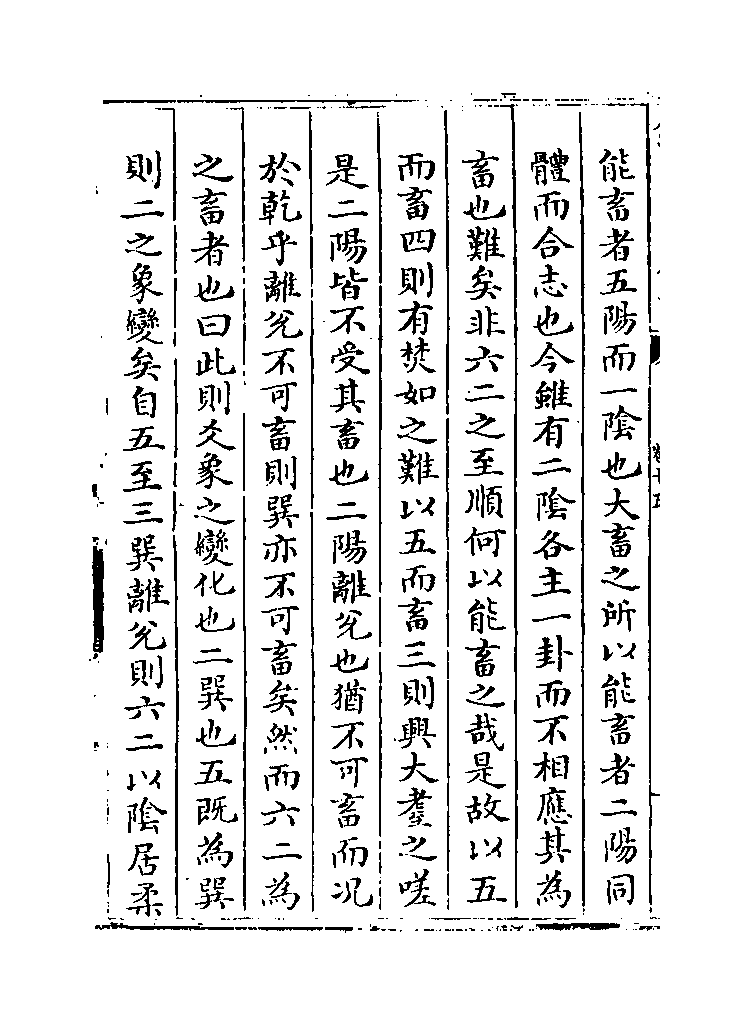 能畜者五陽而一陰也大畜之所以能畜者二陽同
體而合志也今雖有二陰各主一卦而不相應其為
畜也難矣非六二之至順何以能畜之哉是故以五
而畜四則有焚如之難以五而畜三則興大耋之嗟
是二陽皆不受其畜也二陽離兊也猶不可畜而况
於乾乎離兊不可畜則巽亦不可畜矣然而六二為
之畜者也曰此則爻象之變化也二巽也五既為巽
則二之象變矣自五至三巽離兊則六二以陰居柔